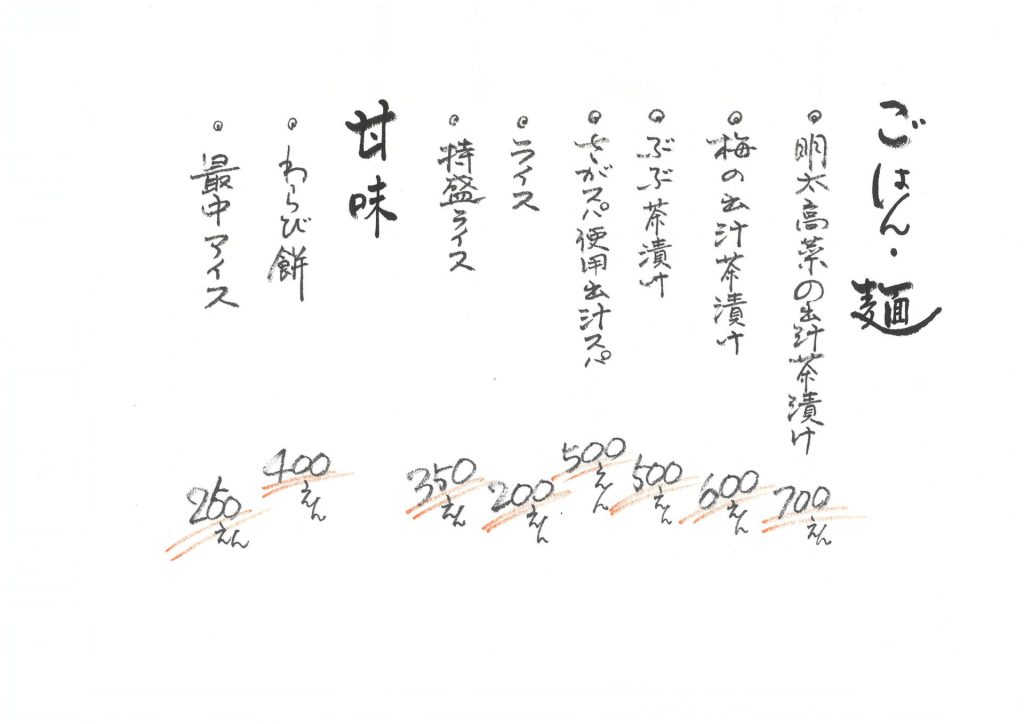 ごはん・麺
・明太高菜の出汁茶漬け 700えん
・梅の出汁茶漬け 600えん
・ぶぶ茶漬け 500えん
・さがスパ使用出汁スパ 500えん
・ライス 200えん
・特盛ライス 350えん
甘味
・わらび餅 400えん
・最中アイス 250えん